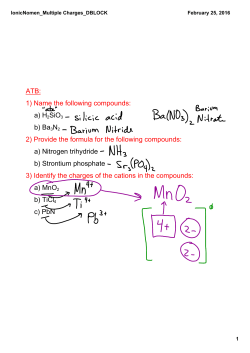 IonicNomen_Multiple Charges_DBLOCK February 25, 2016
ATB:
1) Name the following compounds:
"ate"
a) H₂SiO₃ – silicic acid
b) Ba₃N₂ – Barium Nitride
Ba(NO₃)₂ Barium Nitrate
2) Provide the formula for the following compounds:
a) Nitrogen trihydride – NH₃
b) Strontium phosphate – Sr₃(PO₄)₂
3) Identify the charges of the cations in the compounds:
a) MnO₂ Mn⁴⁺
b) TiCl₄ Ti⁴⁺
c) PbN Pb³⁺
MnO₂
4+ 2-
2-
1